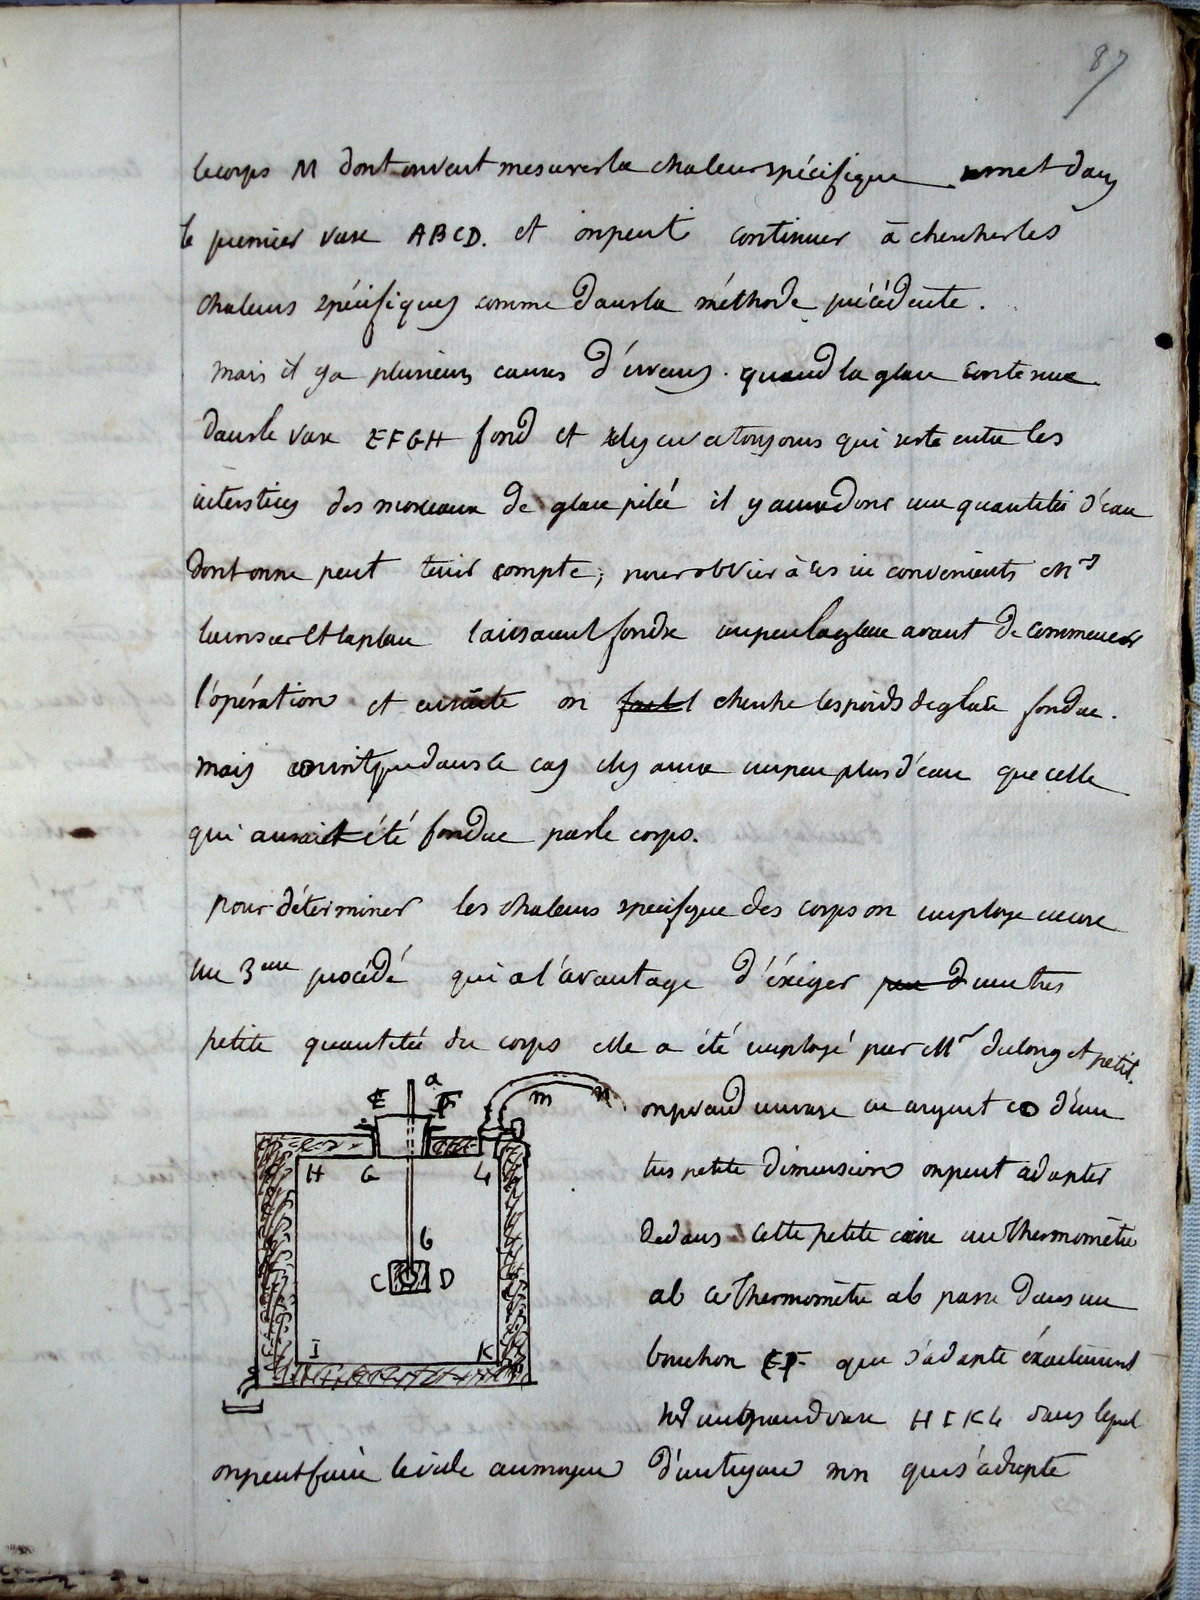 87
le corps M dont on veut mesurer la chaleur spécifique on met dans
le premier vase ABCD. et on peut continuer à chercher les
chaleurs spécifiques comme dans la méthode précédente.
mais il y a plusieurs causes d'erreurs. quand la glace contenue
dans le vase EFGH fond et il y en a toujours qui reste entre les
interstices des morceaux de glace pilée il y aura donc une quantitée d'eau
dont on ne peut tenir compte; pour obvier à ces inconvenients Mrs
et laplace laissaient fondre un peu la glace avant de commencer
l'opération et ensuite on cherche les poids de glace fondue.
mais on voit que dans ce cas il y aura un peu plus d'eau que celle
qui aurait été fondue par le corps.
pour déterminer les chaleurs specifique des corps on employe encore
un 3eme procédé qui a l'avantage d'éxiger peu d une tres
petite quantitée du corps elle a été employé par Mr dulong et petit.
E a F m n
H G L
b
C D
I K
on prend un vase en argent CD d'une
tres petite dimension on peut adapter
dedans cette petite caisse un thermomètre
ab ce thermomètre ab passe dans un
bouchon EF qui s'adapte éxactement
un grand vase HIKL dans lequel
on peut faire le vide au moyen d'un tuyau mn qui s'adapte